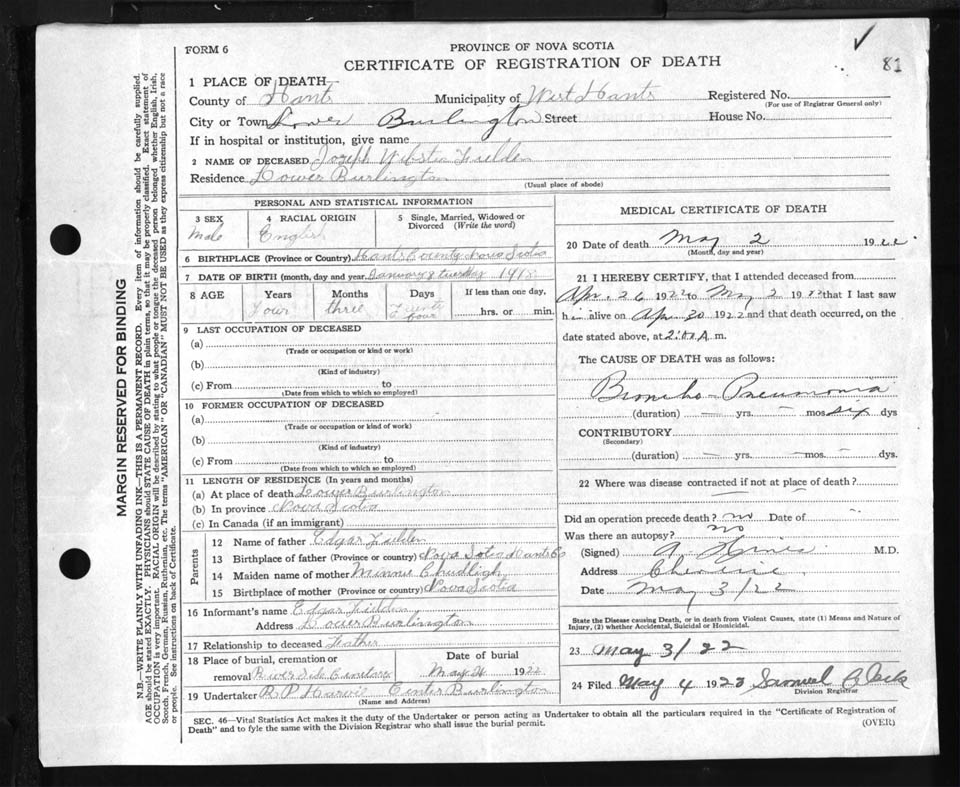 81
FORM 6
PROVINCE OF NOVA SCOTIA
CERTIFICATE OF REGISTRATION OF DEATH
1 PLACE OF DEATH—
County of Hants Municipality of West Hants Registered No.
(For use of Registrar General only)
City or Town Lower Burlington Street House No.
If in hospital or institution, give name
2 NAME OF DECEASED Joseph Webster Fielden
Residence Lower Burlington
(Usual place of abode)
PERSONAL AND STATISTICAL INFORMATION
3 SEX
Male
4 RACIAL ORIGIN
English
5 Single, Married, Widowed or
Divorced (Write the word)
6 BIRTHPLACE (Province or Country) Hants County Nova Scotia
7 DATE OF BIRTH (month, day and year) January 8 1918
8 AGE Years Months Days If less than one day,
Four three Twenty four hrs. or min.
9 LAST OCCUPATION OF DECEASED
(a)
(Trade or occupation or kind or work)
(b)
(Kind of industry)
(c) From to
(Date from which to which so employed)
10 FORMER OCCUPATION OF DECEASED
(a)
(Trade or occupation or kind of work)
(b)
(Kind of industry)
(c) From to
(Date from which to which so employed)
11 LENGTH OF RESIDENCE (In years and months)
(a) At place of death Lower Burlington
(b) In province Nova Scotia
(c) In Canada (if an immigrant)
Parents
12 Name of father Edgar Fielden
13 Birthplace of father (Province or country) Nova Scotia Hants Co
14 Maiden name of mother Minnie Chudligh
15 Birthplace of mother (Province or country) Nova Scotia
16 Informant's name Edgar Fielden
Address Lower Burlington
17 Relationship to deceased Father
18 Place of burial, cremation or Date of burial
removal River Side May 4 1922
19 Undertaker R P Harvie Center Burlington
(Name and Address)
MEDICAL CERTIFICATE OF DEATH
20 Date of death May 2 1922
(Month, day and year)
21 I HEREBY CERTIFY, that I attended deceased from
Apr. 26 1922 to May 2 1922 that I last saw
h im alive on Apr 30 1922 and that death occurred, on the
date stated above, at A m.
The CAUSE OF DEATH was as follows:
Broncho-Pneumonia
(duration) — yrs. — mos six dys
CONTRIBUTORY
(Secondary)
(duration) — yrs. — mos. — dys.
22 Where was disease contracted if not at place of death?
Did an operation precede death? no Date of —
Was there an autopsy? no
(Signed) A Hines M.D.
Address Cheverie
Date May 3/22
State the Disease causing Death, or in death from Violent Causes, state (1) Means and Nature of
Injury, (2) whether Accidental, Suicidal or Homicidal.
23 May 3/22
24 Filed May 4 1923 Samuel Black
Division Registrar
SEC. 46—Vital Statistics Act makes it the duty of the Undertaker or person acting as Undertaker to obtain all the particulars required in the "Certificate of Registration of
Death" and to fyle the same with the Division Registrar who shall issue the burial permit. (OVER)
MARGIN RESERVED FOR BINDING
N.B.—WRITE PLAINLY WITH UNFADING INK—THIS IS A PERMANENT RECORD. Every item of information should be carefully supplied.
AGE should be stated EXACTLY. PHYSICIANS should STATE CAUSE OF DEATH in plain terms, so that it may be properly classified. Exact statement of
OCCUPATION is very important. RACIAL ORIGIN will be described by stating to what people or tongue the deceased person belonged whether English, Irish,
Scotch, French, German, Russian, Ruthenian, etc. The terms "AMERICAN" OR "CANADIAN" MUST NOT BE USED as they express citizenship but not a race
or people. See instructions on back of Certificate.